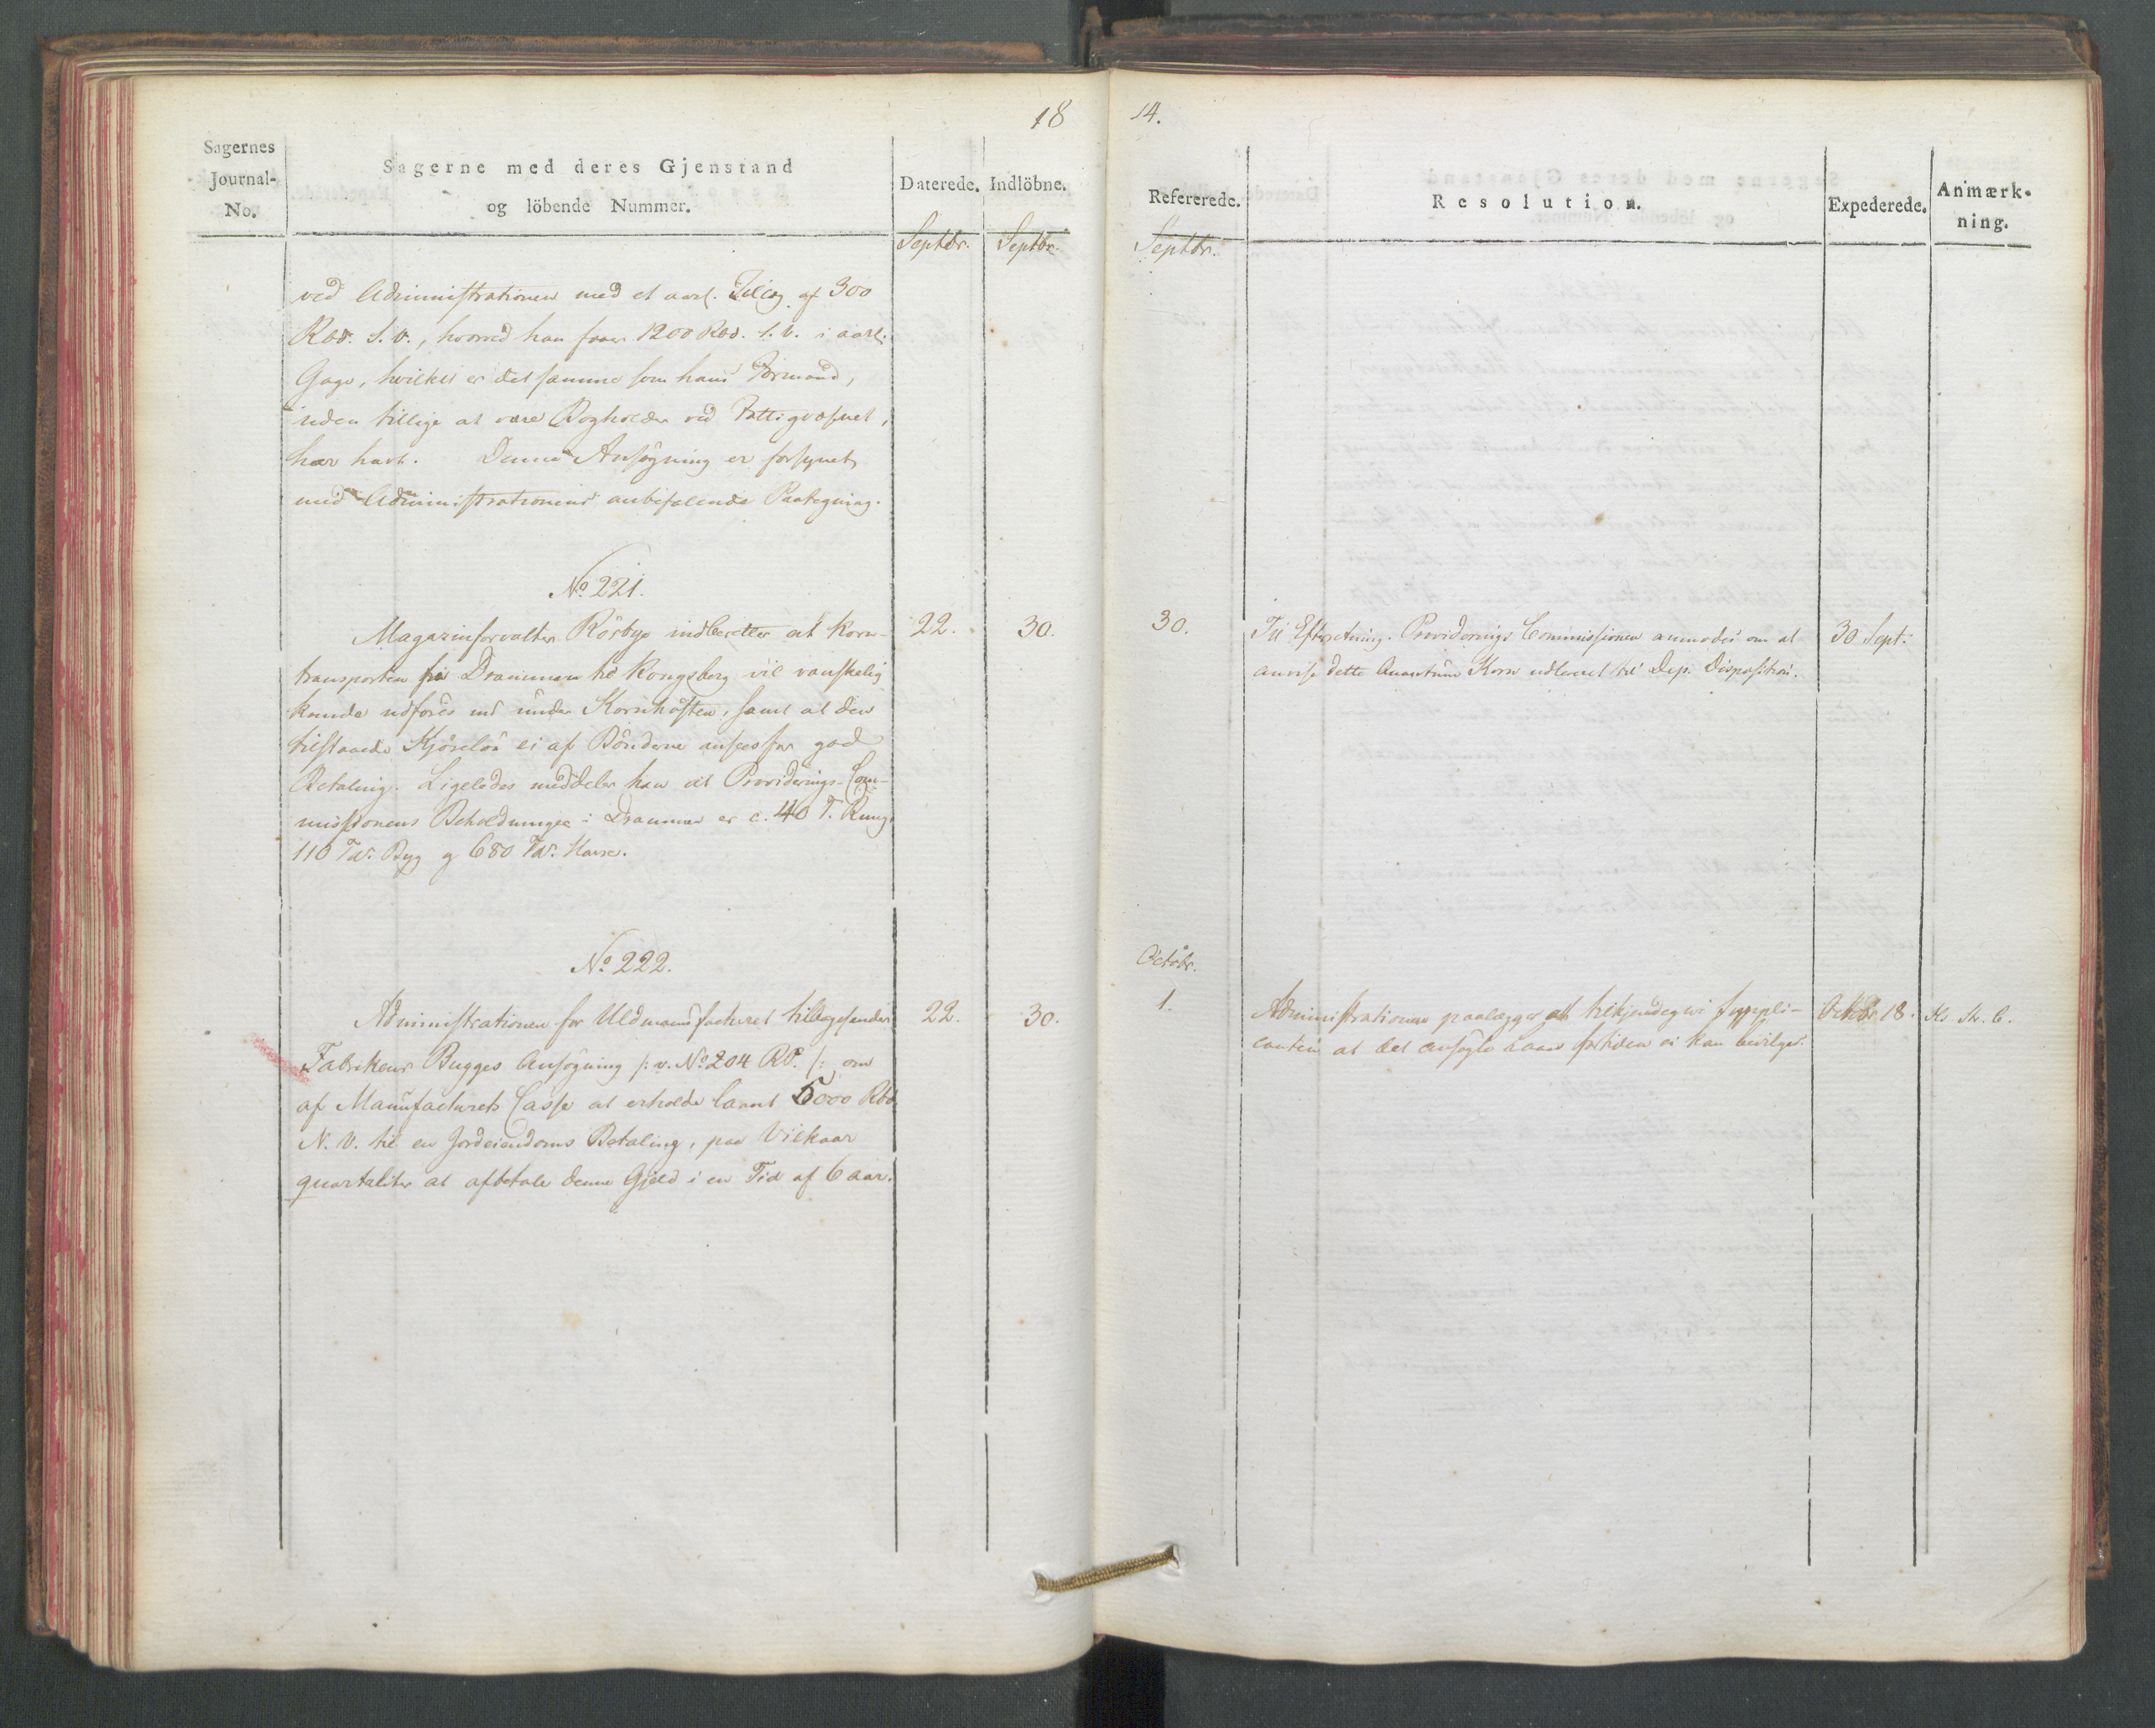 18
Sagernes
Journal-
No.
Sagerne med deres Gjenstand
og löbende Nummer.
Daterede.
Indlöbne.
Septbr.
Septbr.
ved Administrationen med et aarl. Tillæg af 300
Rbd. S.V., hvorved han faaer 1200 Rbd. S.V. i aarl.
Gage, hvilket er det samme som hans Formand,
uden tillige at være Bogholder ved Fattigvæsnet,
har havt. Denne Ansögning er forsynet
med Administrationens anbefalende Paategning.
No. 221.
Magazinforvalter Rösbye indberetter at Korn-
22.
30.
transporten fra Drammen til Kongsberg vil vanskelig
kunde udföres nu under Kornhösten, samt at den
tilstaaede Kjörelön ei af Bönderne ansees for god
Betaling. Ligeledes meddeler han at Provideerings-Com-
missionens Beholdninger i Drammen er c. 40 T. Rung
110 Tdr. Byg og 680 Tdr. Havre.
No. 222.
Administrationen for Uldmanufacturet tilbagesender
22.
30.
Fabrikeur Bugges Ansögning /: v. No. 204 RP. :/ om
af Manufacturets Casse at erholde laant 5000 Rbd
N.V. til en Jordeiendoms Betaling, paa Vilkaar
quartaliter at afbetale denne Gjeld i en Tid af 6 aar.
14.
Refererede.
Resolution.
Expederede.
Anmærk-
ning.
Septbr.
30.
Til Efterretning. Provideerings Commissionen anmodes om at
30 Sept.
anvise dette Quantum Korn udleveret til Dep. Disposition.
Octobr.
1.
Administrationen paalægges at tilkjendegive Suppli-
Octbr 18.
canten at det ansögte Laan for tiden ei kan bevilges.